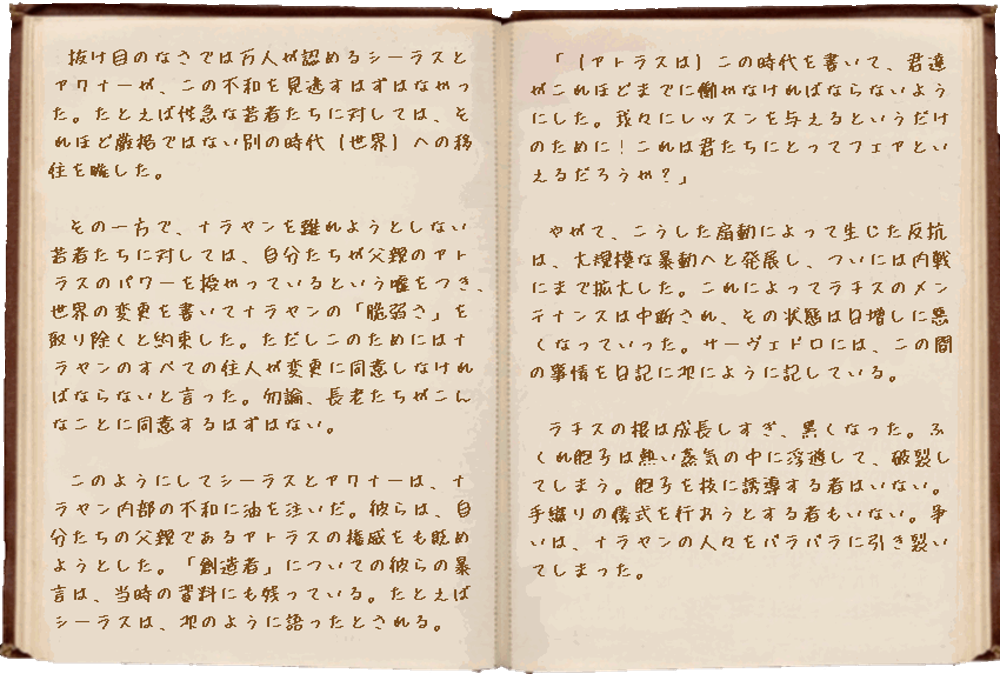 抜け目のなさでは万人が認めるシーラスと
アクナーが、この不和を見逃すはずはなかっ
た。たとえば性急な若者たちに対しては、そ
れほど厳格ではない別の時代(世界)への移
住を唆した。
その一方で、ナラヤンを離れようとしない
若者たちに対しては、自分たちが父親のアト
ラスのパワーを授かっているという嘘をつき、
世界の変更を書いてナラヤンの「脆弱さ」を
取り除くと約束した。ただしこのためにはナ
ラヤンのすべての住人が変更に同意しなけれ
ばならないと言った。勿論、長老たちがこん
なことに同意するはずはない。
このようにしてシーラスとアクナーは、ナ
ラヤン内部の不和に油を注いだ。彼らは、自
分たちの父親であるアトラスの権威をも貶め
ようとした。「創造者」についての彼らの暴
言は、当時の資料にも残っている。たとえば
シーラスは、次のように語ったとされる。
「(アトラスは)この時代を書いて、君達
がこれほどまでに働かなければならないよう
にした。我々にレッスンを与えるというだけ
のために!これは君たちにとってフェアとい
えるだろうか?」
やがて、こうした扇動によって生じた反抗
は、大規模な暴動へと発展し、ついには内戦
にまで拡大した。これによってラチスのメン
テナンスは中断され、その状態は日増しに悪
くなっていった。サーヴェドロには、この間
の事情を日記に次にように記している。
ラチスの根は成長しすぎ、黒くなった。ふ
くれ胞子は熱い蒸気の中に浮遊して、破裂し
てしまう。胞子を枝に誘導する者はいない。
手織りの儀式を行おうとする者もいない。争
いは、ナラヤンの人々をバラバラに引き裂い
てしまった。